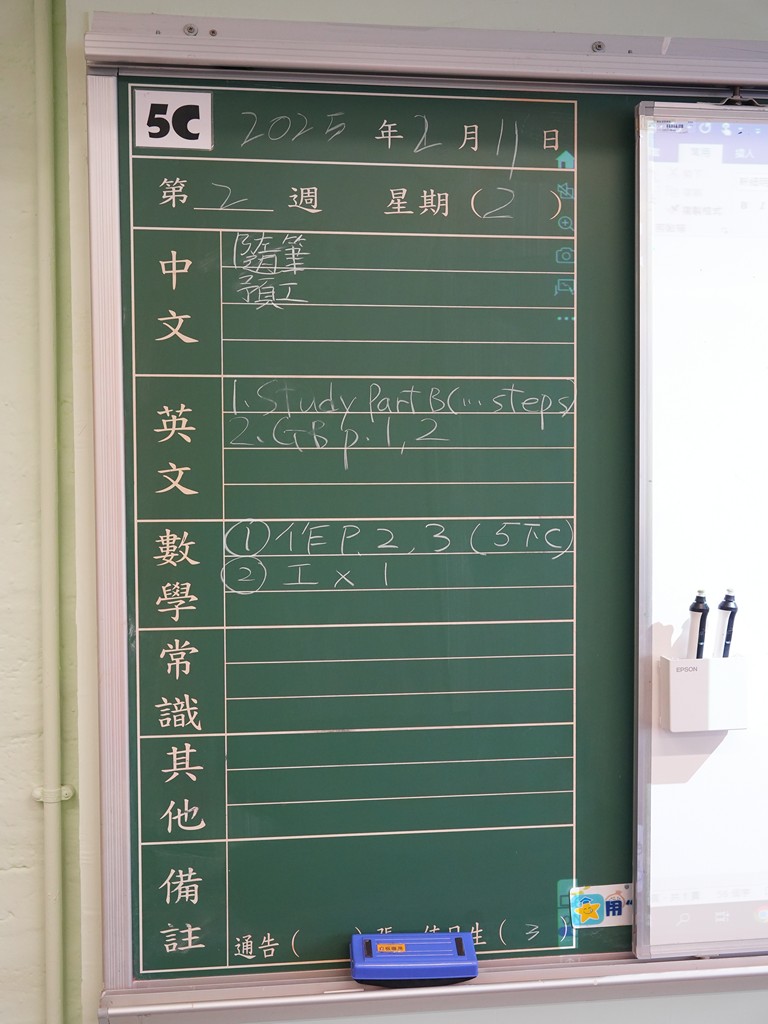 5C 2025 年 2 月 11 日
第 2 週 星期 (2)
中文
隨筆
預工
英文
1. Study Part B(... steps)
2. GB p. 1, 2
數學
① 作 P. 2, 3 (5下C)
② 工 x 1
常識
其他
備註
通告 ( ) 張 值日生 ( 3 )
用
EPSON